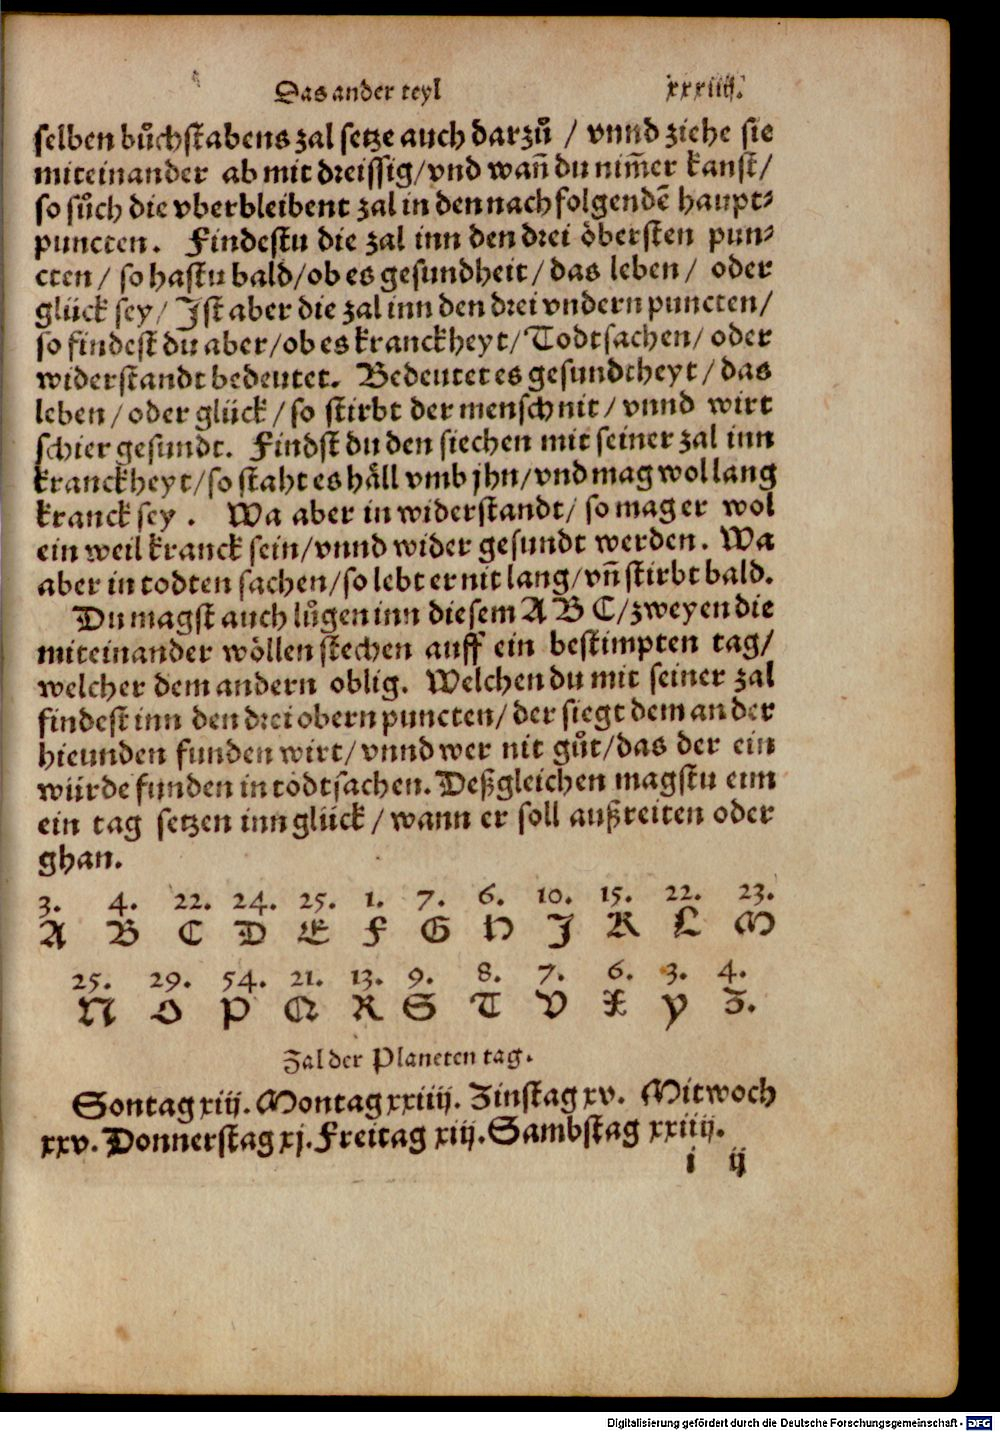 Das ander teyl xxxiiij.
selben bůchstabens zal setze auch darzů / vnnd ziehe sie
miteinander ab mit dreissig/vnd wañ du nim̃er kanst/
so sůch die vberbleibent zal in den nachfolgendẽ haupt-
puncten. Findestu die zal inn den drei öbersten pun-
cten / so hastu bald/ob es gesundheit/ das leben/ oder
glück sey/ Jst aber die zal inn den drei vndern puncten/
so findest du aber/ob es kranckheyt/ Todtsachen/ oder
widerstandt bedeutet. Bedeutet es gesundtheyt/ das
leben/ oder glück/ so stirbt der mensch nit/ vnnd wirt
schier gesundt. Findst du den siechen mit seiner zal inn
kranckheyt/so staht es håll vmb jhn/vnd mag wol lang
kranck sey . Wa aber in widerstandt/ so mag er wol
ein weil kranck sein/vnnd wider gesundt werden. Wa
aber in todten sachen/so lebt er nit lang/vñ stirbt bald.
Du magst auch lůgen inn diesem A B C/zweyen die
miteinander wöllen stechen auff ein bestimpten tag/
welcher dem andern oblig. Welchen du mit seiner zal
findest inn den drei obern puncten/ der siegt dem ander
hieunden funden wirt/ vnnd wer nit gůt/das der ein
würde funden in todtsachen. Deßgleichen magstu eim
ein tag setzen inn glück / wann er soll außreiten oder
ghan.
3. 4. 22. 24. 25. 1. 7. 6. 10. 15. 22. 23.
A B C D E F G H J K L M
25. 29. 54. 21. 13. 9. 8. 7. 6. 3. 4.
N O P Q R S T V X Y Z.
Zal der Planeten tag.
Sontag xiij. Montag xxiiij. Zinstag xv. Mitwoch
xxv. Donnerstag xj. Freitag xiij. Sambstag xxiiij.
i ij
Digitalisierung gefördert durch die Deutsche Forschungsgemeinschaft - DFG